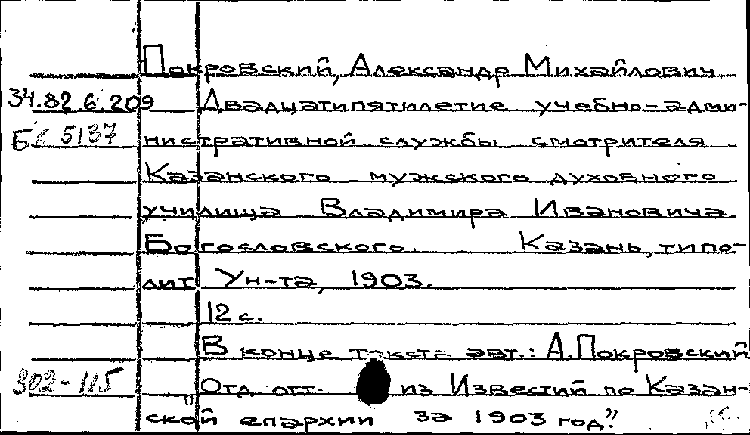 Покровский, Александр Михайлович
34.82.6.209 Двадцатипятилетие учебно-адми-
5137 нистративной службы смотрителя
Казанского мужского духовного
училища Владимира Ивановича
Богословского. Казань, типо-
лит. Ун-та, 1903.
12 с.
В конце текста авт.: А. Покровский
302-115 "Отд. отт. из Известий по Казан-
ской епархии за 1903 год".